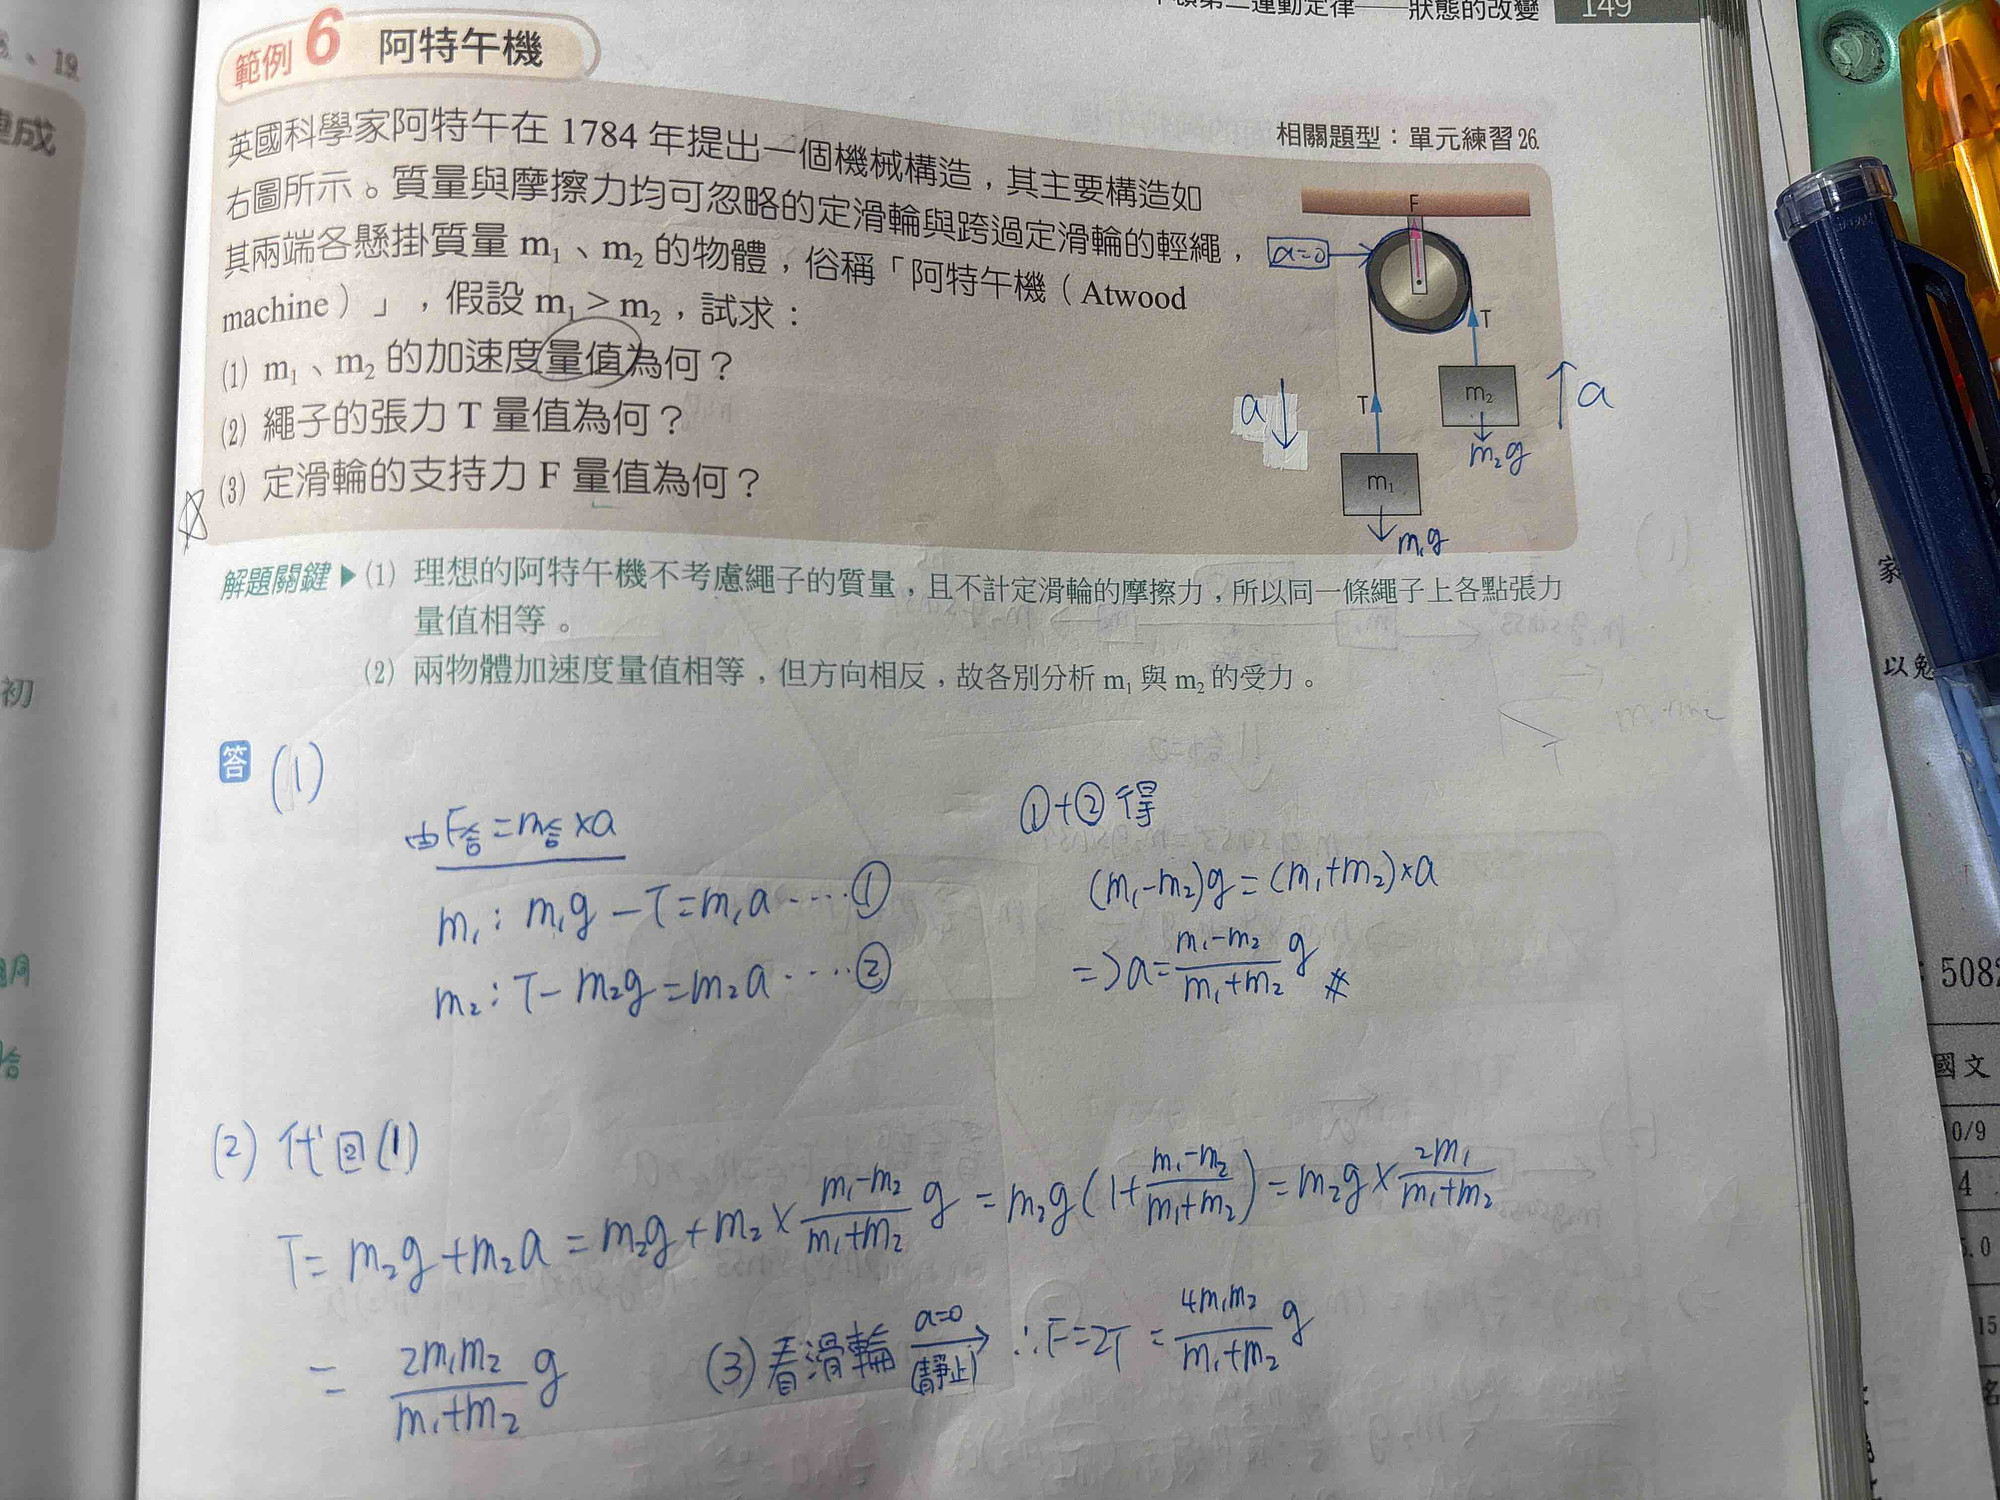 第二運動定律──狀態的改變 149
範例 6 阿特午機
相關題型：單元練習 26.
英國科學家阿特午在 1784 年提出一個機械構造，其主要構造如
右圖所示。質量與摩擦力均可忽略的定滑輪與跨過定滑輪的輕繩，
其兩端各懸掛質量 m₁、m₂ 的物體，俗稱「阿特午機（Atwood
machine）」，假設 m₁ > m₂，試求：
(1) m₁、m₂ 的加速度量值為何？
(2) 繩子的張力 T 量值為何？
(3) 定滑輪的支持力 F 量值為何？
F
a=0
T
T
m₂
m₂g
a
a
m₁
m₁g
解題關鍵 ▶ (1) 理想的阿特午機不考慮繩子的質量，且不計定滑輪的摩擦力，所以同一條繩子上各點張力
量值相等。
(2) 兩物體加速度量值相等，但方向相反，故各別分析 m₁ 與 m₂ 的受力。
答 (1)
由F合=m合×a
m₁: m₁g－T=m₁a ‥‥①
m₂: T－m₂g=m₂a ‥‥②
①+②得
(m₁-m₂)g=(m₁+m₂)×a
=> a=\frac{m₁-m₂}{m₁+m₂}g #
(2) 代回(1)
T= m₂g+m₂a = m₂g+m₂×\frac{m₁-m₂}{m₁+m₂}g = m₂g(1+\frac{m₁-m₂}{m₁+m₂}) = m₂g×\frac{2m₁}{m₁+m₂}
= \frac{2m₁m₂}{m₁+m₂}g
(3) 看滑輪 a=0 (靜止) → ∴F=2T = \frac{4m₁m₂}{m₁+m₂}g
、19.
成
初
同
合
家
以免
508
國文
0/9
4
5.0
15
名